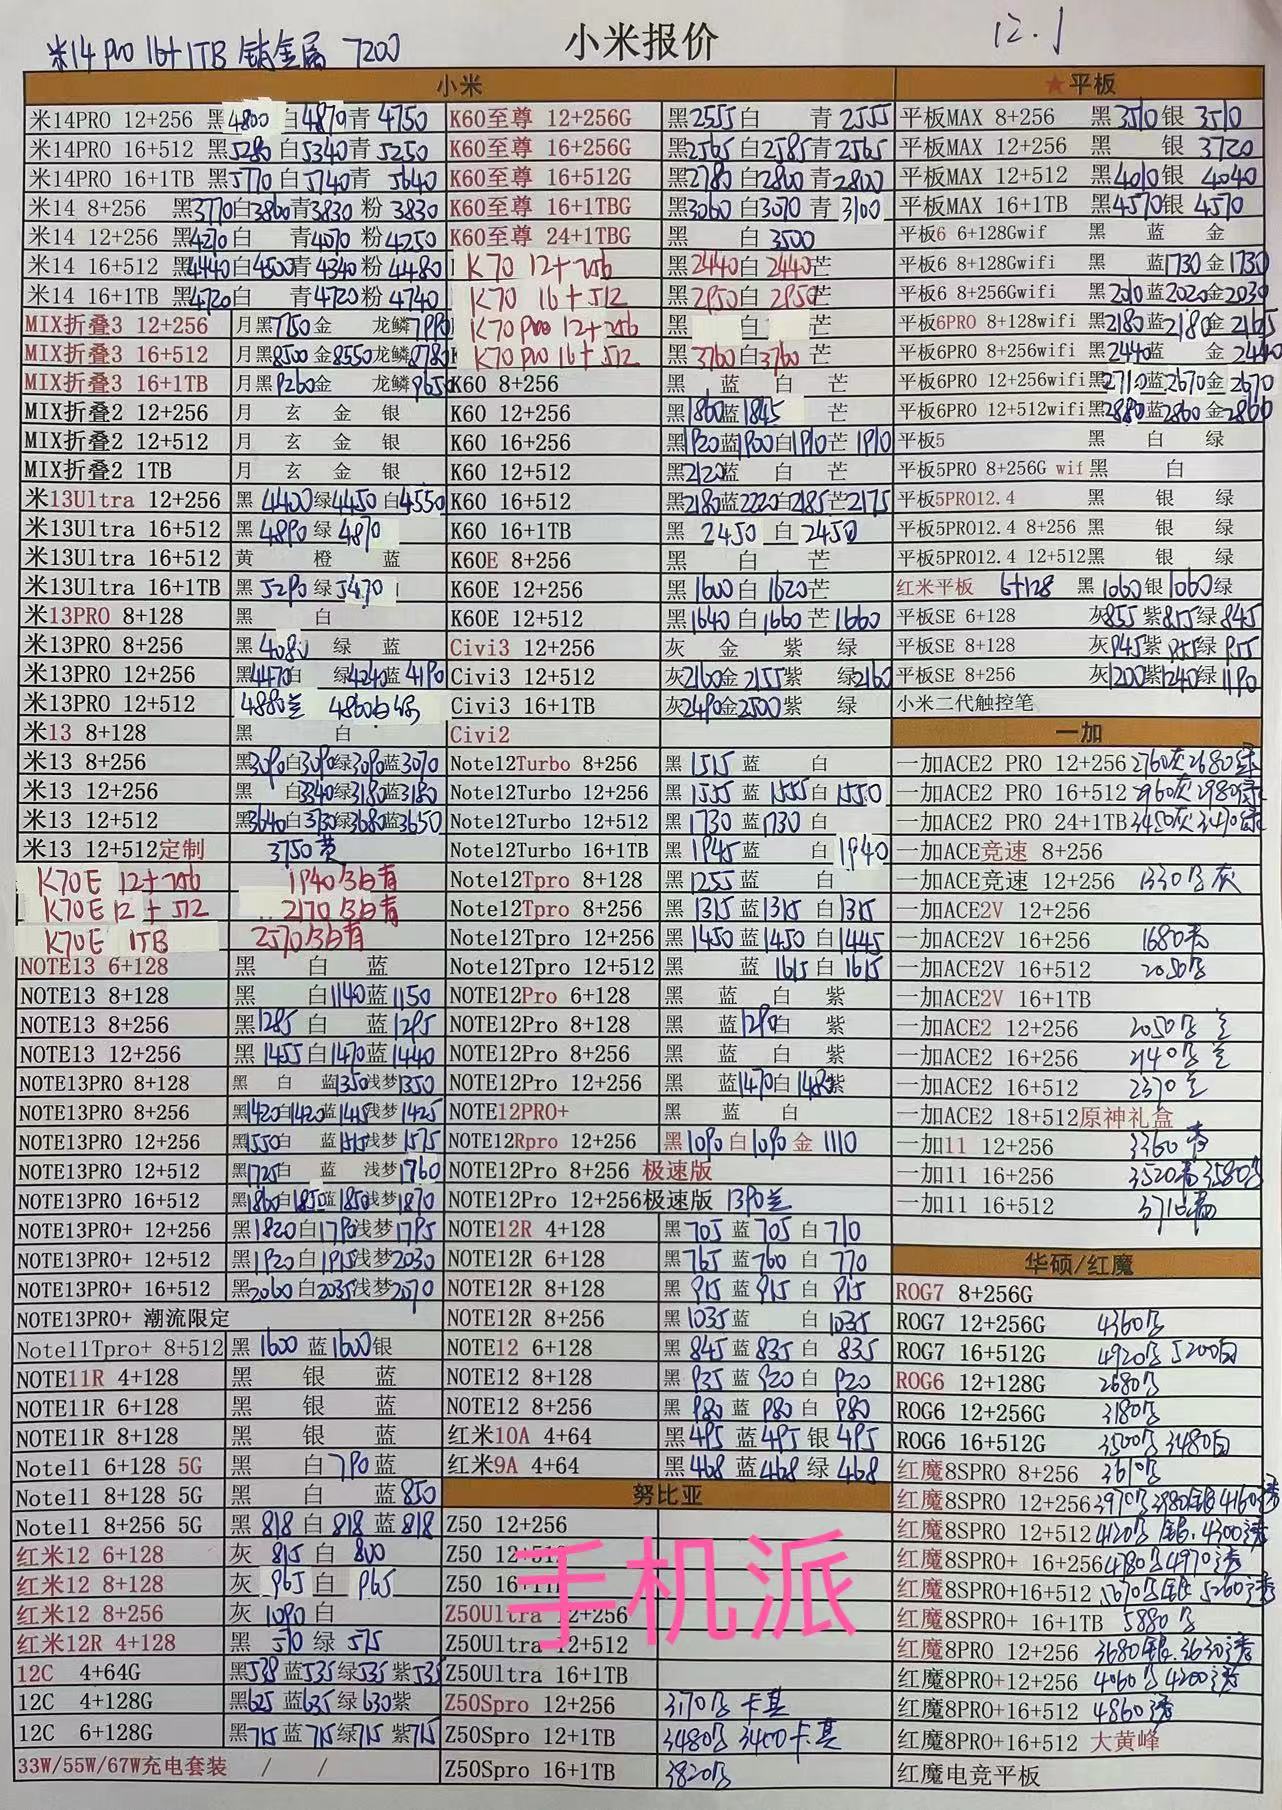 米14 pro 16+1TB 钛金属 7200
小米报价
12.1
小米
米14PRO 12+256 黑4800 白4870青4750
米14PRO 16+512 黑5280白5340青5250
米14PRO 16+1TB 黑5770白5740青5640
米14 8+256 黑3770白3860青3830粉3830
米14 12+256 黑4270白 青4070粉4250
米14 16+512 黑4440白4500青4340粉4480
米14 16+1TB 黑4720白 青4720粉4740
MIX折叠3 12+256 月黑7750金 龙鳞7990
MIX折叠3 16+512 月黑8500金8550龙鳞8780
MIX折叠3 16+1TB 月黑9260金 龙鳞9650
MIX折叠2 12+256 月 玄 金 银
MIX折叠2 12+512 月 玄 金 银
MIX折叠2 1TB 月 玄 金 银
米13Ultra 12+256 黑4400绿4450白4550
米13Ultra 16+512 黑4890绿4870
米13Ultra 16+512 黄 橙 蓝
米13Ultra 16+1TB 黑5290绿5470
米13PRO 8+128 黑 白
米13PRO 8+256 黑4080 绿 蓝
米13PRO 12+256 黑4470白 绿4240蓝4190
米13PRO 12+512 4880兰 4860白绿
米13 8+128 黑 白
米13 8+256 黑3090白3090绿3090蓝3070
米13 12+256 黑 白3340绿3180蓝3180
米13 12+512 黑3640白3730绿3680蓝3650
米13 12+512定制 3750黄
K70E 12+256 1940分白有
K70E 12+512 2170分白有
K70E 1TB 2570分白有
NOTE13 6+128 黑 白 蓝
NOTE13 8+128 黑 白1140蓝1150
NOTE13 8+256 黑1285白 蓝1295
NOTE13 12+256 黑1455白1470蓝1440
NOTE13PRO 8+128 黑 白 蓝1350浅梦1350
NOTE13PRO 8+256 黑1420白1420蓝1445浅梦1425
NOTE13PRO 12+256 黑1550白 蓝1515浅梦1575
NOTE13PRO 12+512 黑1725白 蓝 浅梦1760
NOTE13PRO 16+512 黑1860白1850蓝1850浅梦1870
NOTE13PRO+ 12+256 黑1820白1790浅梦1795
NOTE13PRO+ 12+512 黑1920白1915浅梦2030
NOTE13PRO+ 16+512 黑2060白2035浅梦2070
NOTE13PRO+ 潮流限定
Note11Tpro+ 8+512 黑1600蓝1600银
NOTE11R 4+128 黑 银 蓝
NOTE11R 6+128 黑 银 蓝
NOTE11R 8+128 黑 银 蓝
Note11 6+128 5G 黑 白790蓝
Note11 8+128 5G 黑 白 蓝850
Note11 8+256 5G 黑818白818蓝818
红米12 6+128 灰815白800
红米12 8+128 灰965白965
红米12 8+256 灰1090白
红米12R 4+128 黑570绿575
12C 4+64G 黑538蓝535绿535紫535
12C 4+128G 黑625蓝635绿630紫
12C 6+128G 黑715蓝715绿715紫715
33W/55W/67W充电套装 / /
K60至尊 12+256G 黑2555白 青2555
K60至尊 16+256G 黑2565白2585青2565
K60至尊 16+512G 黑2780白2800青2800
K60至尊 16+1TBG 黑3060白3070青3100
K60至尊 24+1TBG 黑 白3500
K70 12+256 黑2440白2440芒
K70 16+512 黑2950白2950芒
K70pro 12+256 黑 白 芒
K70pro 16+512 黑3760白3760芒
K60 8+256 黑 蓝 白 芒
K60 12+256 黑1860蓝1845 芒
K60 16+256 黑1920蓝1900白1910芒1910
K60 12+512 黑2120蓝 白 芒
K60 16+512 黑2180蓝2220白2185芒2175
K60 16+1TB 黑2450白2450
K60E 8+256 黑 白 芒
K60E 12+256 黑1600白1620芒
K60E 12+512 黑1640白1660芒1660
Civi3 12+256 灰 金 紫 绿
Civi3 12+512 灰2160金2155紫 绿2160
Civi3 16+1TB 灰2490金2500紫 绿
Civi2
Note12Turbo 8+256 黑1515蓝 白
Note12Turbo 12+256 黑1555蓝1555白1550
Note12Turbo 12+512 黑1730蓝1730白
Note12Turbo 16+1TB 黑1945蓝 白1940
Note12Tpro 8+128 黑1255蓝 白
Note12Tpro 8+256 黑1315蓝1315白1315
Note12Tpro 12+256 黑1450蓝1450白1445
Note12Tpro 12+512 黑 蓝1615白1615
NOTE12Pro 6+128 黑 蓝 白 紫
NOTE12Pro 8+128 黑 蓝1290白 紫
NOTE12Pro 8+256 黑 蓝 白 紫
NOTE12Pro 12+256 黑 蓝1470白1480紫
NOTE12PRO+ 黑 蓝 白
NOTE12Rpro 12+256 黑1090白1090金1110
NOTE12Pro 8+256 极速版
NOTE12Pro 12+256极速版 1390兰
NOTE12R 4+128 黑705蓝705白710
NOTE12R 6+128 黑765蓝760白770
NOTE12R 8+128 黑915蓝915白915
NOTE12R 8+256 黑1035 白1035
NOTE12 6+128 黑845蓝835白835
NOTE12 8+128 黑935蓝920白920
NOTE12 8+256 黑980蓝980白980
红米10A 4+64 黑495蓝495银495
红米9A 4+64 黑468蓝468绿468
努比亚
Z50 12+256
Z50 12+512
Z50 16+1TB
Z50Ultra 12+256
Z50Ultra 12+512
Z50Ultra 16+1TB
Z50Spro 12+256 3170分 卡其
Z50Spro 12+1TB 3480分 3400卡其
Z50Spro 16+1TB 3820分
★平板
平板MAX 8+256 黑3510银3510
平板MAX 12+256 黑 银3720
平板MAX 12+512 黑4010银4040
平板MAX 16+1TB 黑4570银4570
平板6 6+128Gwif 黑 蓝 金
平板6 8+128Gwifi 黑 蓝1730金1730
平板6 8+256Gwifi 黑2010蓝2020金2030
平板6PRO 8+128wifi 黑2180蓝2180金2165
平板6PRO 8+256wifi 黑2440蓝 金2440
平板6PRO 12+256wifi黑2710蓝2670金2670
平板6PRO 12+512wifi黑2880蓝2860金2860
平板5 黑 白 绿
平板5PRO 8+256G wif 黑 白
平板5PRO12.4 黑 银 绿
平板5PRO12.4 8+256 黑 银 绿
平板5PRO12.4 12+512黑 银 绿
红米平板 6+128 黑1060银1060绿
平板SE 6+128 灰855紫855绿845
平板SE 8+128 灰945紫955绿955
平板SE 8+256 灰1200紫1240绿1190
小米二代触控笔
一加
一加ACE2 PRO 12+256 2760灰2680绿
一加ACE2 PRO 16+512 2960灰2980绿
一加ACE2 PRO 24+1TB 3450灰3490绿
一加ACE竞速 8+256
一加ACE竞速 12+256 1330分灰
一加ACE2V 12+256
一加ACE2V 16+256 1680青
一加ACE2V 16+512 2050分
一加ACE2V 16+1TB
一加ACE2 12+256 2050分 兰
一加ACE2 16+256 2140分 兰
一加ACE2 16+512 2370兰
一加ACE2 18+512原神礼盒
一加11 12+256 3360青
一加11 16+256 3520青3580分
一加11 16+512 3710青
华硕/红魔
ROG7 8+256G
ROG7 12+256G 4360分
ROG7 16+512G 4920分 5200白
ROG6 12+128G 2680分
ROG6 12+256G 3180分
ROG6 16+512G 3500分 3480白
红魔8SPRO 8+256 3610分
红魔8SPRO 12+256 3970分3980银4160透
红魔8SPRO 12+512 4120分 银.4300透
红魔8SPRO+ 16+256 4780分4970透
红魔8SPRO+16+512 5070分银 5260透
红魔8SPRO+ 16+1TB 5880分
红魔8PRO 12+256 3680银.3630透
红魔8PRO+12+256 4060分4200透
红魔8PRO+16+512 4860透
红魔8PRO+16+512 大黄峰
红魔电竞平板
手机派